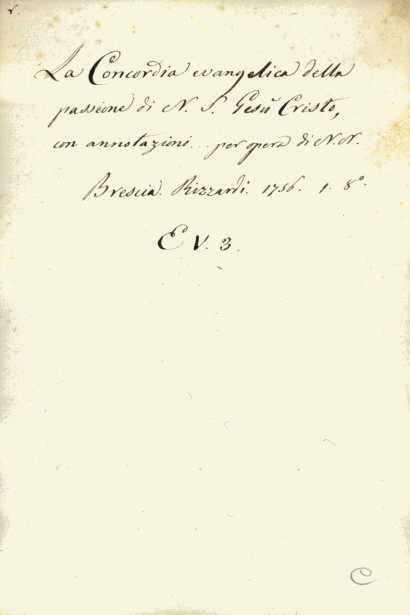 r.
La Concordia evangelica della
passione di N. S. Gesù Cristo,
con annotazioni... per opera di N. N.
Brescia. Rizzardi. 1756. 1. 8°.
E V. 3.
C